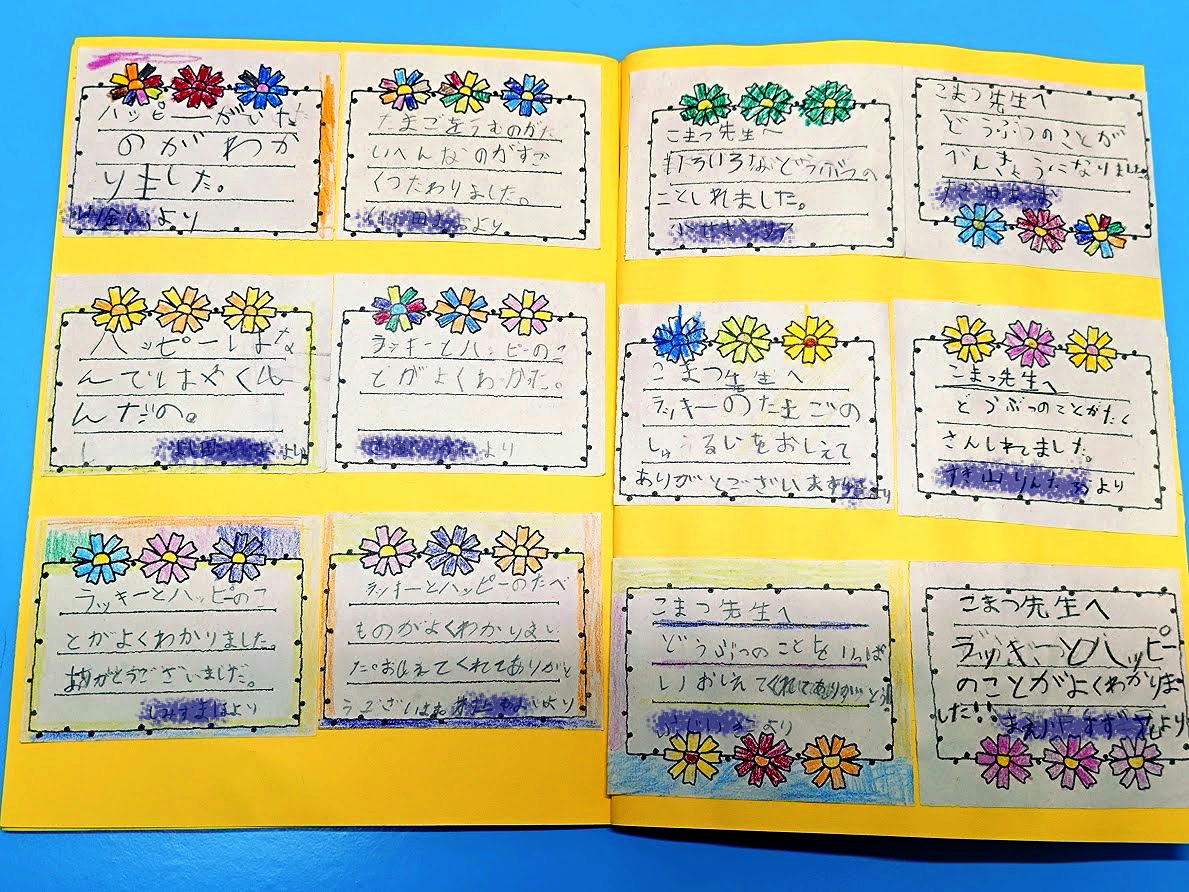 ハッピーがいな
のがわか
りました。
より
たまごをうむのがた
いへんなのがすご
くつたわりました。
より
ハッピーはな
んではやくし
んだの。
より
ラッキーとハッピーのこ
とがよくわかった。
より
ラッキーとハッピのこ
とがよくわかりました。
ありがとうございました。
より
ラッキーとハッピーのたべ
ものがよくわかりまし
た。おしえてくれてありがと
うございました
より
こまつ先生へ
いろいろなどうぶつの
ことしれました。
こまつ先生へ
どうぶつのことが
べんきょうになりました
こまつ先生へ
ラッキーのたまごの
しゅうるいをおしえて
ありがとございます
より
こまつ先生へ
どうぶつのことがたく
さんしれてました。
より
こまつ先生へ
どうぶつのことをいっぱ
いおしえてくれてありがとう
より
こまつ先生へ
ラッキーとハッピー
のことがよくわかりま
した!!
より